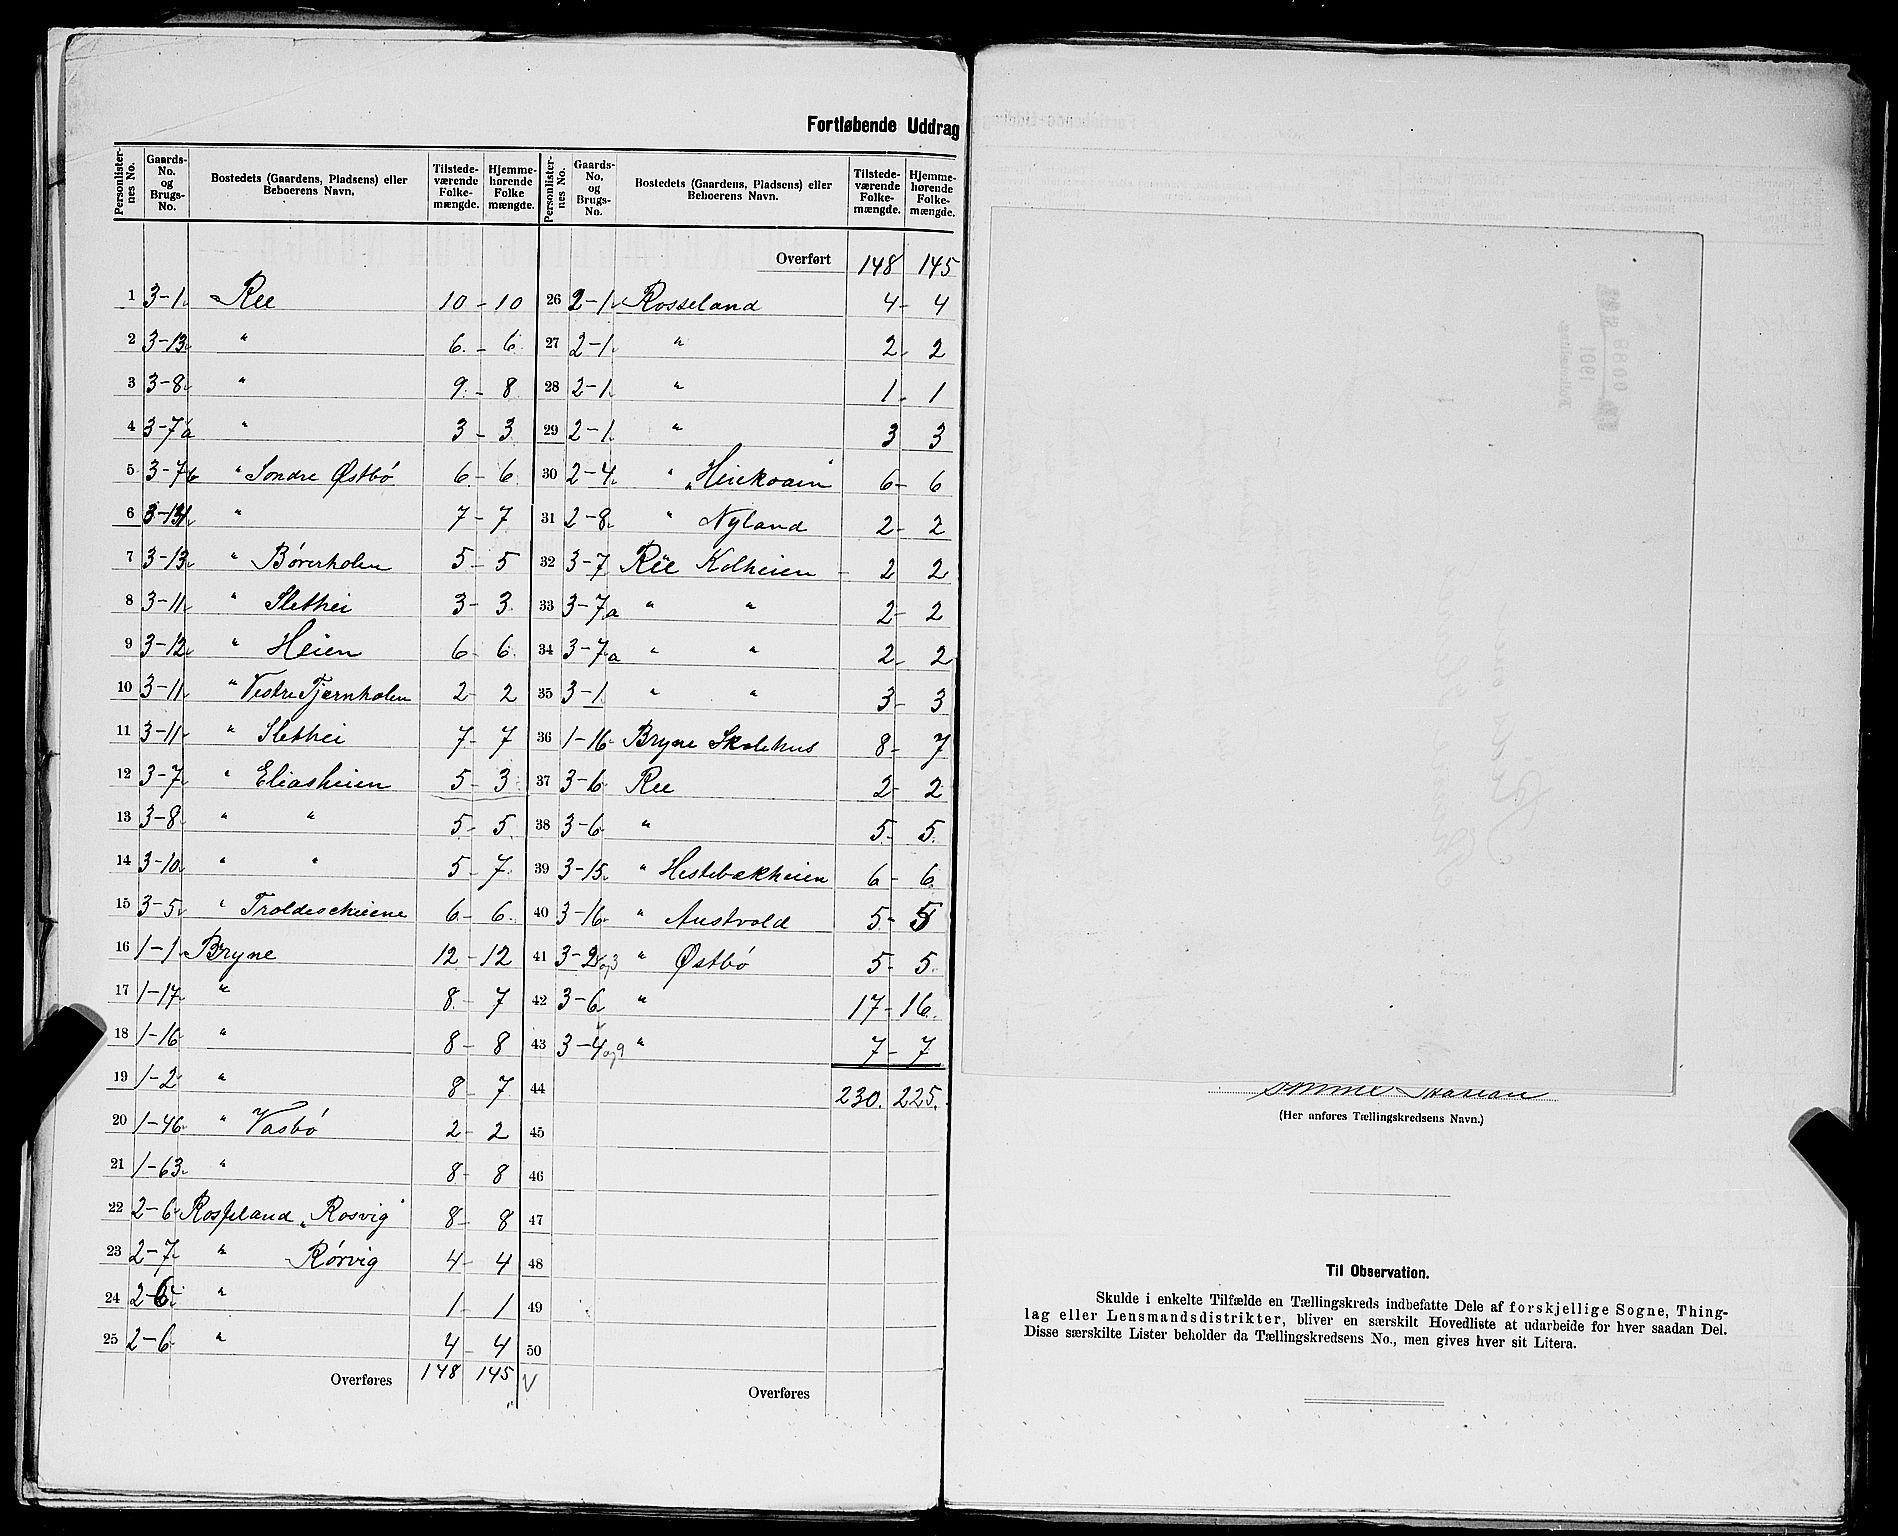 Fortløbende Uddrag
Personlisternes No. | Gaards-No. og Brugs-No. | Bostedets (Gaardens, Pladsens) eller Beboerens Navn. | Tilstedeværende Folkemængde. | Hjemmehørende Folkemængde.
1 3-1 Ree 10 - 10
2 3-13 " 6 - 6
3 3-8 " 9 - 8
4 3-7a " 3 - 3
5 3-7b " Søndre Østbø 6 - 6
6 3-14 " 7 - 7
7 3-13 " Børerholen 5 - 5
8 3-11 " Slethei 3 - 3
9 3-12 " Heien 6 - 6
10 3-11 " Vestre Tjernholen 2 - 2
11 3-11 " Slethei 7 - 7
12 3-7 " Eliasheien 5 - 3
13 3-8 " " 5 - 5
14 3-10 " " 5 - 7
15 3-5 " 6 - 6
16 1-1 Bryne 12 - 12
17 1-17 " 8 - 7
18 1-16 " 8 - 8
19 1-2 " 8 - 7
20 1-46 " Vasbø 2 - 2
21 1-63 " 8 - 8
22 2-6 Rosseland „Rosvig" 8 - 8
23 2-7 " Rørvig 4 - 4
24 2-6 " 1 - 1
25 2-6 " 4 - 4
Overføres 148 145
Personlisternes No. | Gaards-No. og Brugs-No. | Bostedets (Gaardens, Pladsens) eller Beboerens Navn. | Tilstedeværende Folkemængde. | Hjemmehørende Folkemængde.
Overført 148 145
26 2-1 Rosseland 4 - 4
27 2-1 " 2 - 2
28 2-1 " 1 - 1
29 2-1 " 3 3
30 2-4 " 6 - 6
31 2-8 " Nyland 2 - 2
32 3-7 Ree Kolheien - 2 2
33 3-7a " " 2 - 2
34 3-7a " " 2 - 2
35 3-1 " " 3 - 3
36 1-16 Bryne Skolehus 8 - 7
37 3-6 Ree 2 - 2
38 3-6 " 5 - 5
39 3-15 " Hestebækheien 6 - 6
40 3-16 " Austvold 5 - 5
41 3-2 og 3 " Østbø 5 - 5
42 3-6 " 17 - 16
43 3-4 og 9 " 7 - 7
44 230. 225.
45
46
47
48
49
50
Overføres
(Her anføres Tællingskredsens Navn.)
Til Observation.
Skulde i enkelte Tilfælde en Tællingskreds indbefatte Dele af forskjellige Sogne, Thing-
lag eller Lensmandsdistrikter, bliver en særskilt Hovedliste at udarbeide for hver saadan Del.
Disse særskilte Lister beholder da Tællingskredsens No., men gives hver sit Litera.